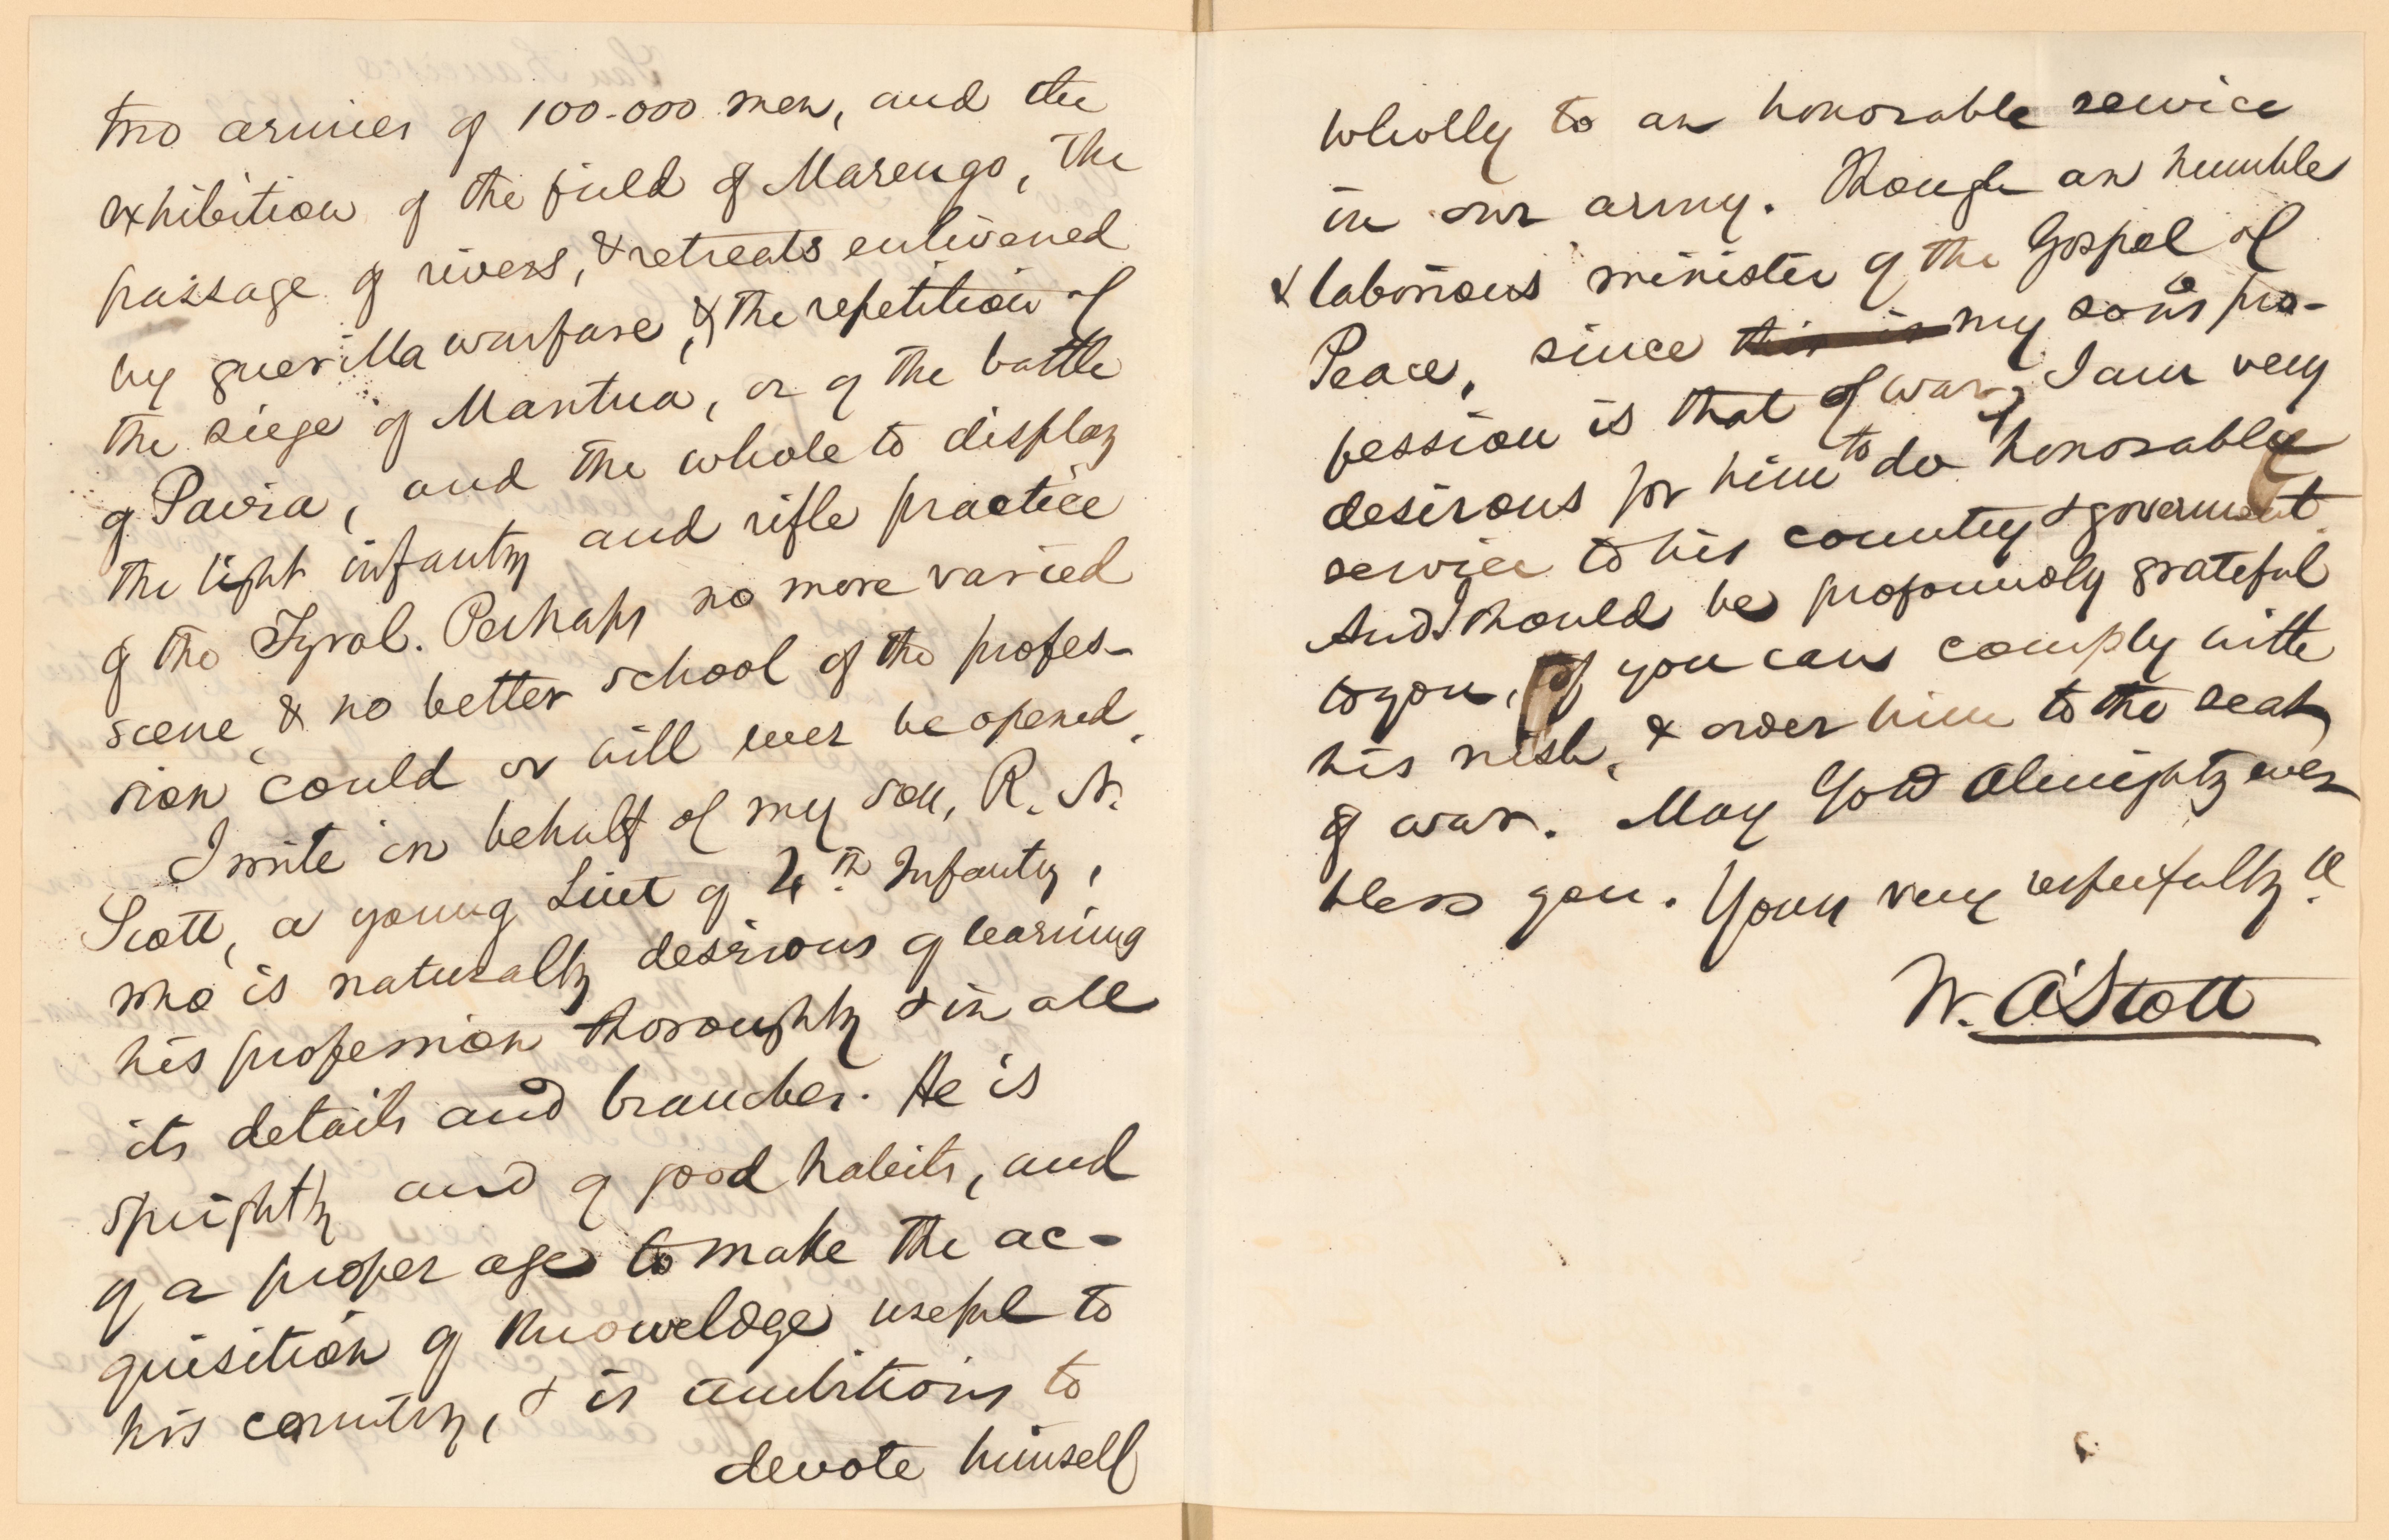 two armies of 100-000 men, and the
exhibition of the field of Marengo, the
passage of rivers, & retreats enlivened
by guerilla warfare, & the repetition of
the siege of Mantua, or of the battle
of Pavia, and the whole to display
the light infantry and rifle practice
of the Tyrol. Perhaps no more varied
scene, & no better school of the profes-
sion could or will ever be opened.
I write in behalf of my son, R. N.
Scott, a young Liut of 4th Infantry,
who is naturally desirous of learning
his profession thoroughly & in all
its details and branches. He is
sprightly and of good habits, and
of a proper age to make the ac-
quisition of knoweldge useful to
his country, & is ambitious to
devote himself
wholly to an honorable service
in our army. Though an humble
& laborious minister of the Gospel of
Peace, since this is my son's pro-
fession is that of war, I am very
desirous for him to do honorable
service to his country & government.
And I should be profoundly grateful
to you, if you can comply with
his wish, & order him to the seat
of war. May God Almighty ever
bless you. Yours very respectfully &c.
W. A. Scott